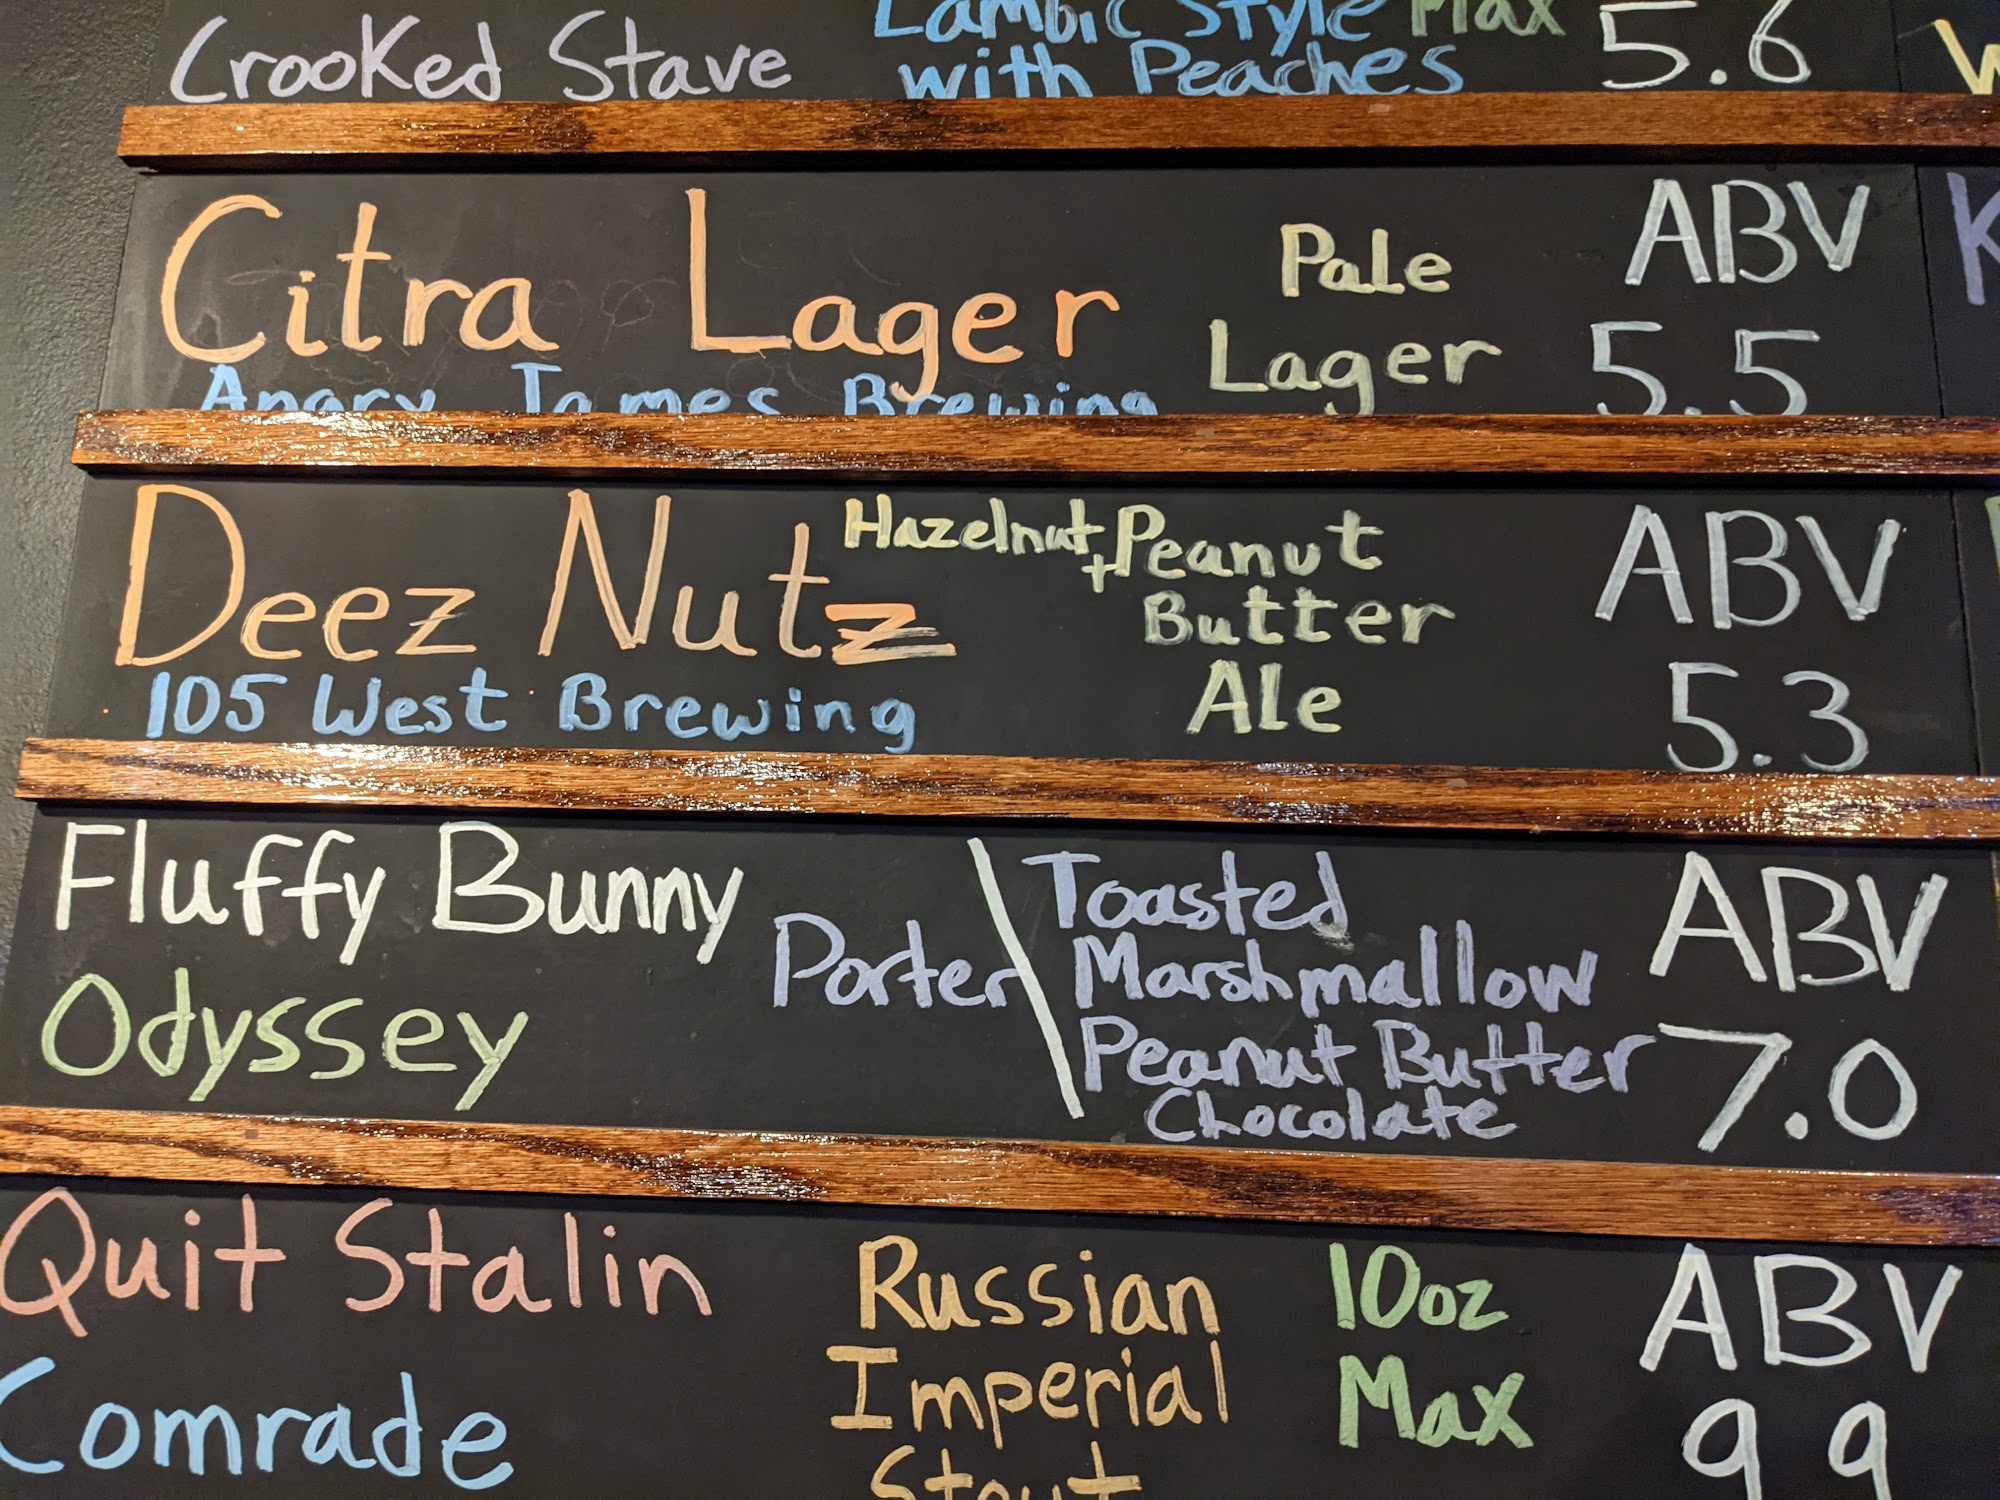 Lambic Style Max
Crooked Stave with Peaches 5.6
Citra Lager Pale Lager ABV 5.5
Angry James Brewing
Deez Nutz Hazelnut + Peanut Butter Ale ABV 5.3
105 West Brewing
Fluffy Bunny Porter \ Toasted Marshmallow Peanut Butter Chocolate ABV 7.0
Odyssey
Quit Stalin Russian Imperial Stout 10oz Max ABV 9.9
Comrade